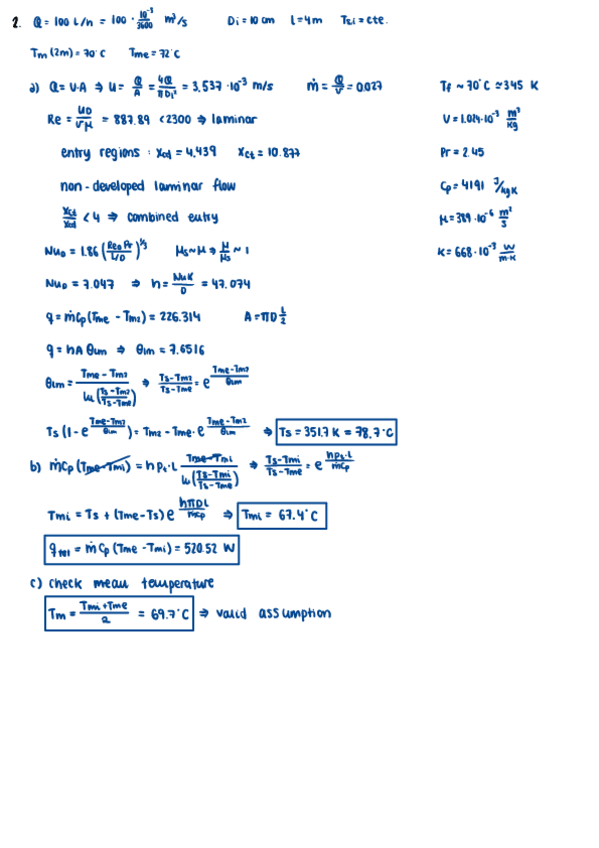 2. Q = 100 L/h = 100 · 10⁻³/3600 m³/s Di = 10 cm L = 4m Tsi = cte.
Tm (2m) = 70°C Tme = 72°C
a) Q = V·A ⇒ u = Q/A = 4Q/πDi² = 3,537 · 10⁻³ m/s ṁ = Q/V = 0.027 Tf ~ 70°C ≈ 345 K
Re = uD/vμ = 887.89 < 2300 ⇒ laminar V = 1.024·10⁻³ m³/kg
entry regions : Xcd = 4.439 Xct = 10.877 Pr = 2.45
non-developed laminar flow Cp = 4191 J/kgK
Xct/Xcd < 4 ⇒ combined entry μ = 389·10⁻⁶ m²/s
Nu_D = 1.86 (Re_D Pr / L/D)^1/3 μs ~ μ ⇒ μ/μs ~ 1 K = 668·10⁻³ W/m·K
Nu_D = 7.047 ⇒ h = Nu K/D = 47.074
q = ṁCp(Tme - Tm2) = 226.314 A = πD L/2
q = hA θlm ⇒ θlm = 7.6516
θlm = Tme - Tm2 / ln(Ts-Tm2/Ts-Tme) ⇒ Ts-Tm2/Ts-Tme = e^(Tme-Tm2/θlm)
Ts (1 - e^(Tme-Tm2/θlm)) = Tm2 - Tme·e^(Tme-Tm2/θlm) ⇒ Ts = 351.7 K = 78.7°C
b) ṁCp (Tme-Tmi) = h p_t·L Tme-Tmi / ln(Ts-Tmi/Ts-Tme) ⇒ Ts-Tmi/Ts-Tme = e^(h p_t·L/ṁCp)
Tmi = Ts + (Tme-Ts) e^(hπDL/ṁCp) ⇒ Tmi = 67.4°C
q_tot = ṁ Cp (Tme - Tmi) = 520.52 W
c) check mean temperature
Tm = Tmi+Tme/2 = 69.7°C ⇒ valid assumption